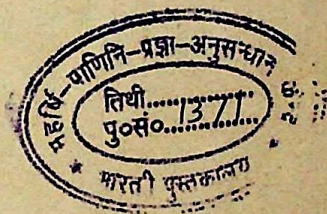 महर्षि-पाणिनि-प्रज्ञा-अनुसन्धान
तिथी..............
पु०सं०....1371....
भारती पुस्तकालय